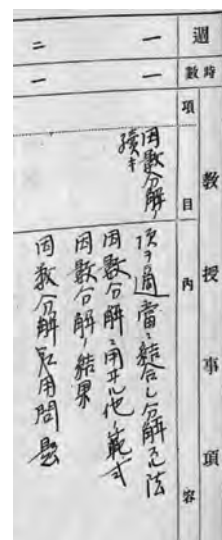 週 一 二
時數 一 一
教授事項
項目
因數分解ノ
續キ
內容
項ヲ適當ニ結合シ分解スル法
因數分解ニ用フル他ノ範式
因數分解ノ結果
因數分解応用問題